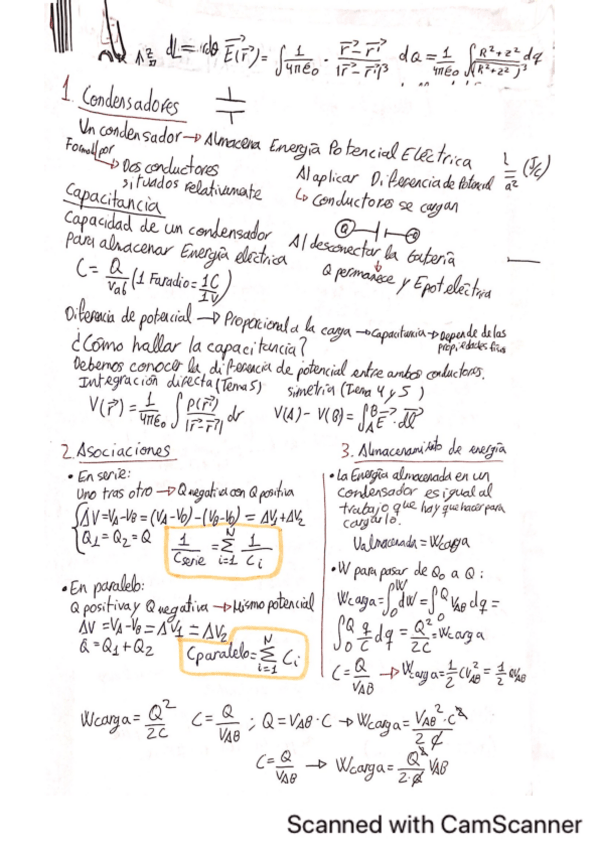 dL = idθ E⃗(r⃗) = ∫ 1/4πε₀ · r⃗ - r⃗'/|r⃗ - r⃗'|³ dQ = 1/4πε₀ ∫ R²+z²/(R²+z²)³ dq
1. Condensadores
Un condensador → Almacena Energía Potencial Eléctrica
Formado por
→ Dos conductores situados relativamente
Al aplicar Diferencia de Potencial
↳ Conductores se cargan
Capacitancia
Capacidad de un condensador
para almacenar Energía eléctrica
C = Q/Vab (1 Faradio = 1C/1V)
Al desconectar la batería
Q permanece y Epot eléctrica
Diferencia de potencial → Proporcional a la carga → Capacitancia → Depende de las propiedades
¿Cómo hallar la capacitancia?
Debemos conocer la diferencia de potencial entre ambos conductores.
Integración directa (Tema 5) simetría (Tema 4 y 5)
V(r⃗) = 1/4πε₀ ∫ ρ(r⃗')/|r⃗-r⃗'| dv V(A) - V(B) = ∫_A^B E⃗ · dl⃗
2. Asociaciones
• En serie:
Uno tras otro → Q negativa con Q positiva
ΔV = VA - VB = (VA - VD) - (VB - VD) = ΔV1 + ΔV2
Q1 = Q2 = Q
1/Cserie = Σ_{i=1}^N 1/Ci
• En paralelo:
Q positiva y Q negativa → Mismo potencial
ΔV = VA - VB = ΔV1 = ΔV2
Q = Q1 + Q2
Cparalelo = Σ_{i=1}^N Ci
3. Almacenamiento de energía
• La Energía almacenada en un
condensador es igual al
trabajo que hay que hacer para
cargarlo.
Ualmacenada = Wcarga
• W para pasar de Q0 a Q:
Wcarga = ∫_0^W dW = ∫_0^Q VAB dq =
∫_0^Q q/C dq = Q²/2C = Wcarga
C = Q/VAB → Wcarga = 1/2 CVAB² = 1/2 QVAB
Wcarga = Q²/2C C = Q/VAB ; Q = VAB · C → Wcarga = VAB² · C²/2C
C = Q/VAB → Wcarga = Q²/2·Q VAB
Scanned with CamScanner